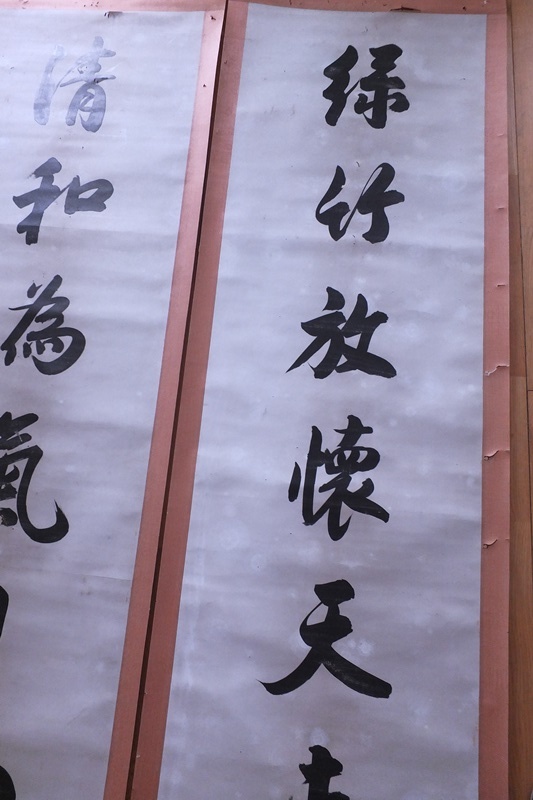 绿竹放懷天
清和為氣